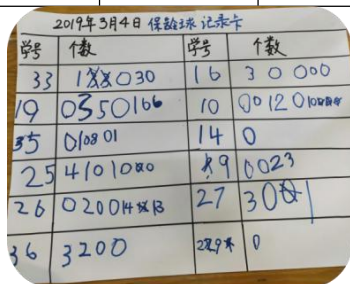 2019年3月4日 保龄球记录卡
学号 个数 学号 个数
33 1 0 3 0 16 3 0 0 0 0
19 0 3 5 0 1 6 6 10 0 0 1 2 0
35 0 1 0 8 0 1 14 0
25 4 1 0 1 0 0 9 0 0 2 3
26 0 2 0 0 14 13 27 3 0 1
36 3 2 0 0 0